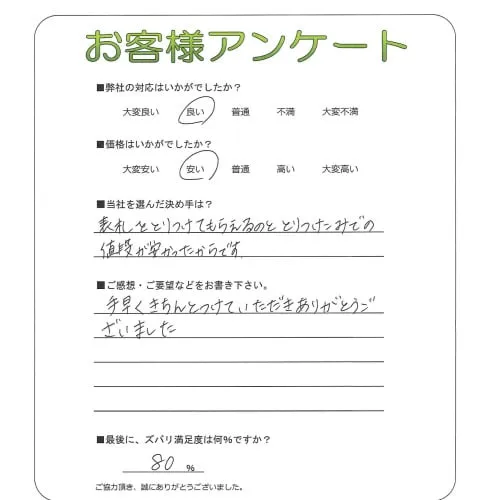 お客様アンケート
■弊社の対応はいかがでしたか？
大変良い 良い 普通 不満 大変不満
■価格はいかがでしたか？
大変安い 安い 普通 高い 大変高い
■当社を選んだ決め手は？
表札をとりつけてもらえるのと とりつけこみでの
値段が安かったからです
■ご感想・ご要望などをお書き下さい。
手早くきちんとつけていただきありがとうご
ざいました
■最後に、ズバリ満足度は何%ですか？
80 %
ご協力頂き、誠にありがとうございました。